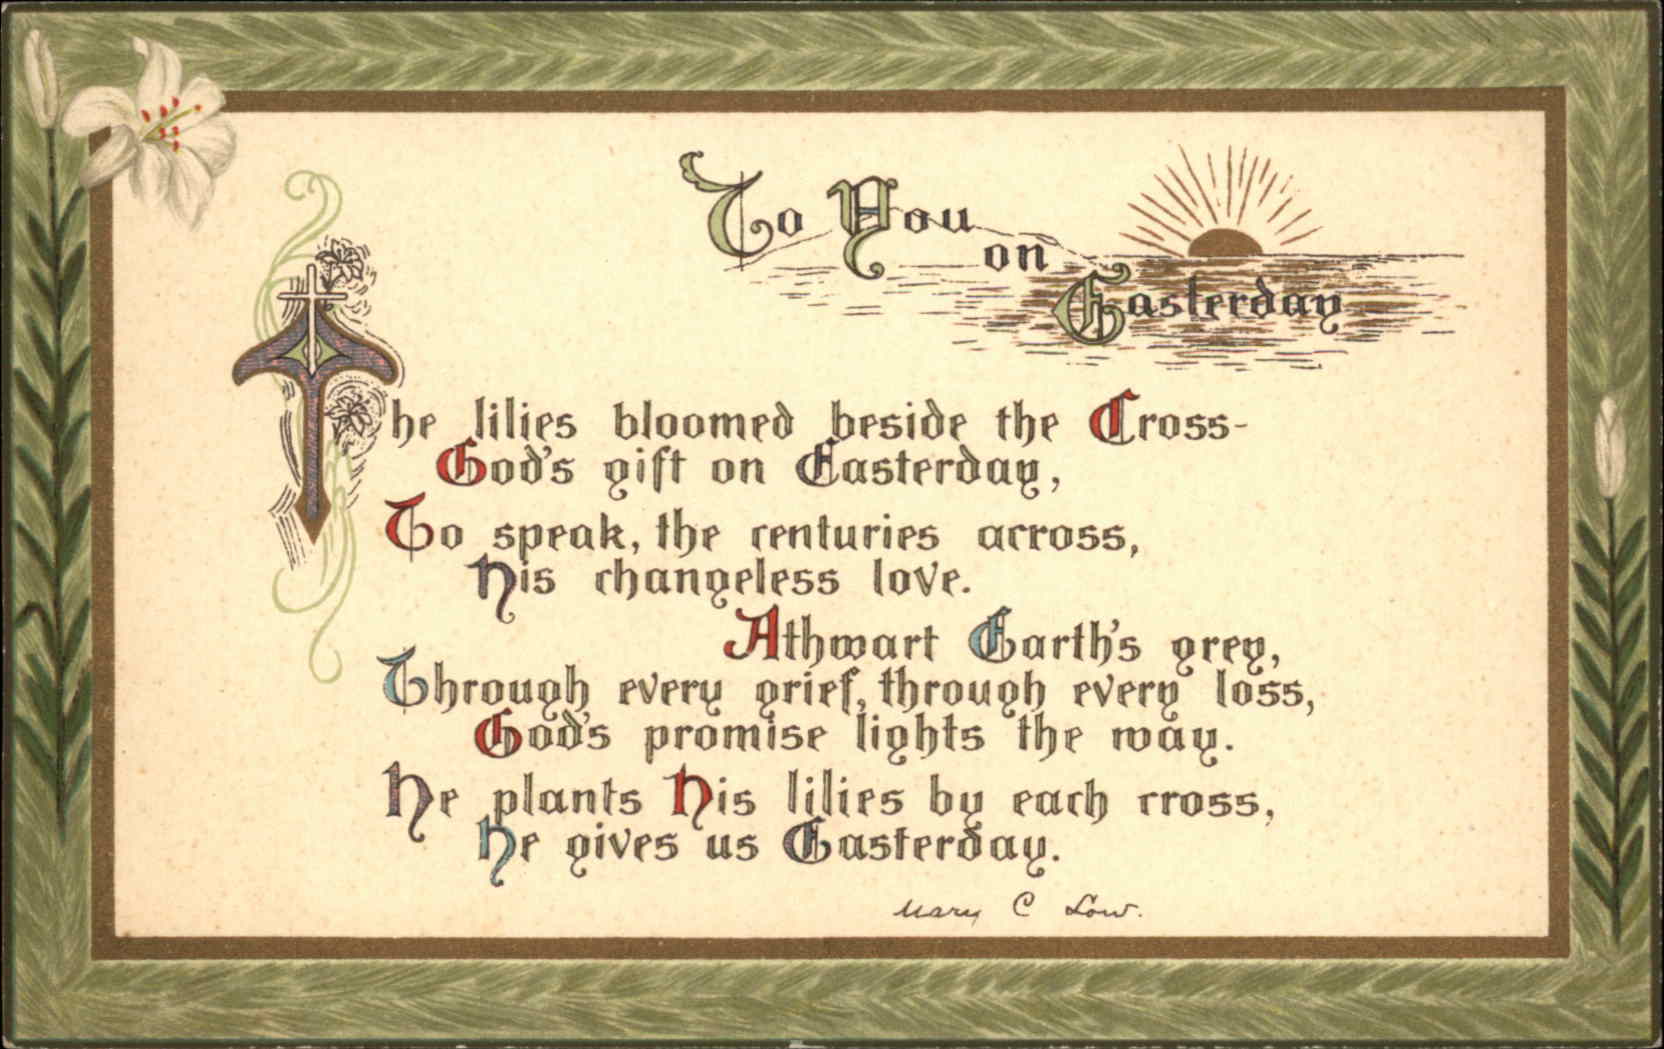 To You
on
Easterday
The lilies bloomed beside the Cross-
God's gift on Easterday,
To speak, the centuries across,
His changeless love.
Athwart Earth's grey,
Through every grief, through every loss,
God's promise lights the way.
He plants His lilies by each cross,
He gives us Easterday.
Mary C Low.